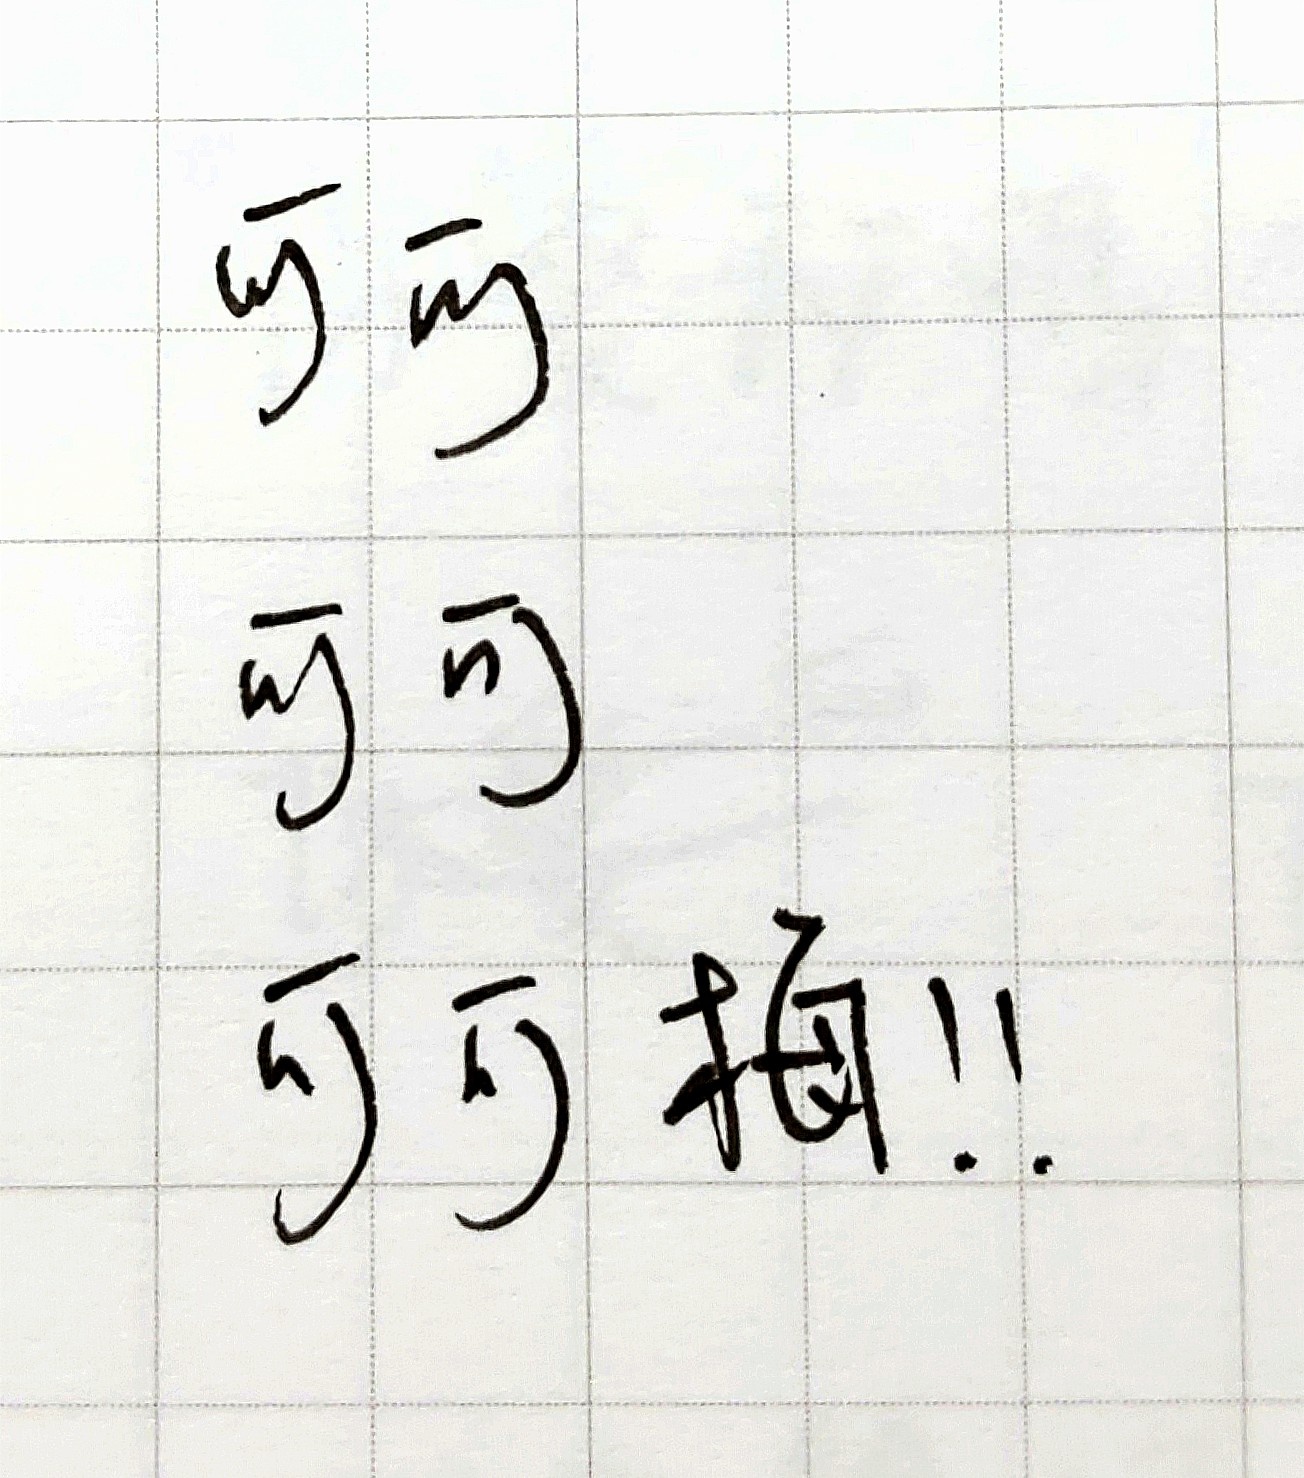 可可
可可
可可掏!!